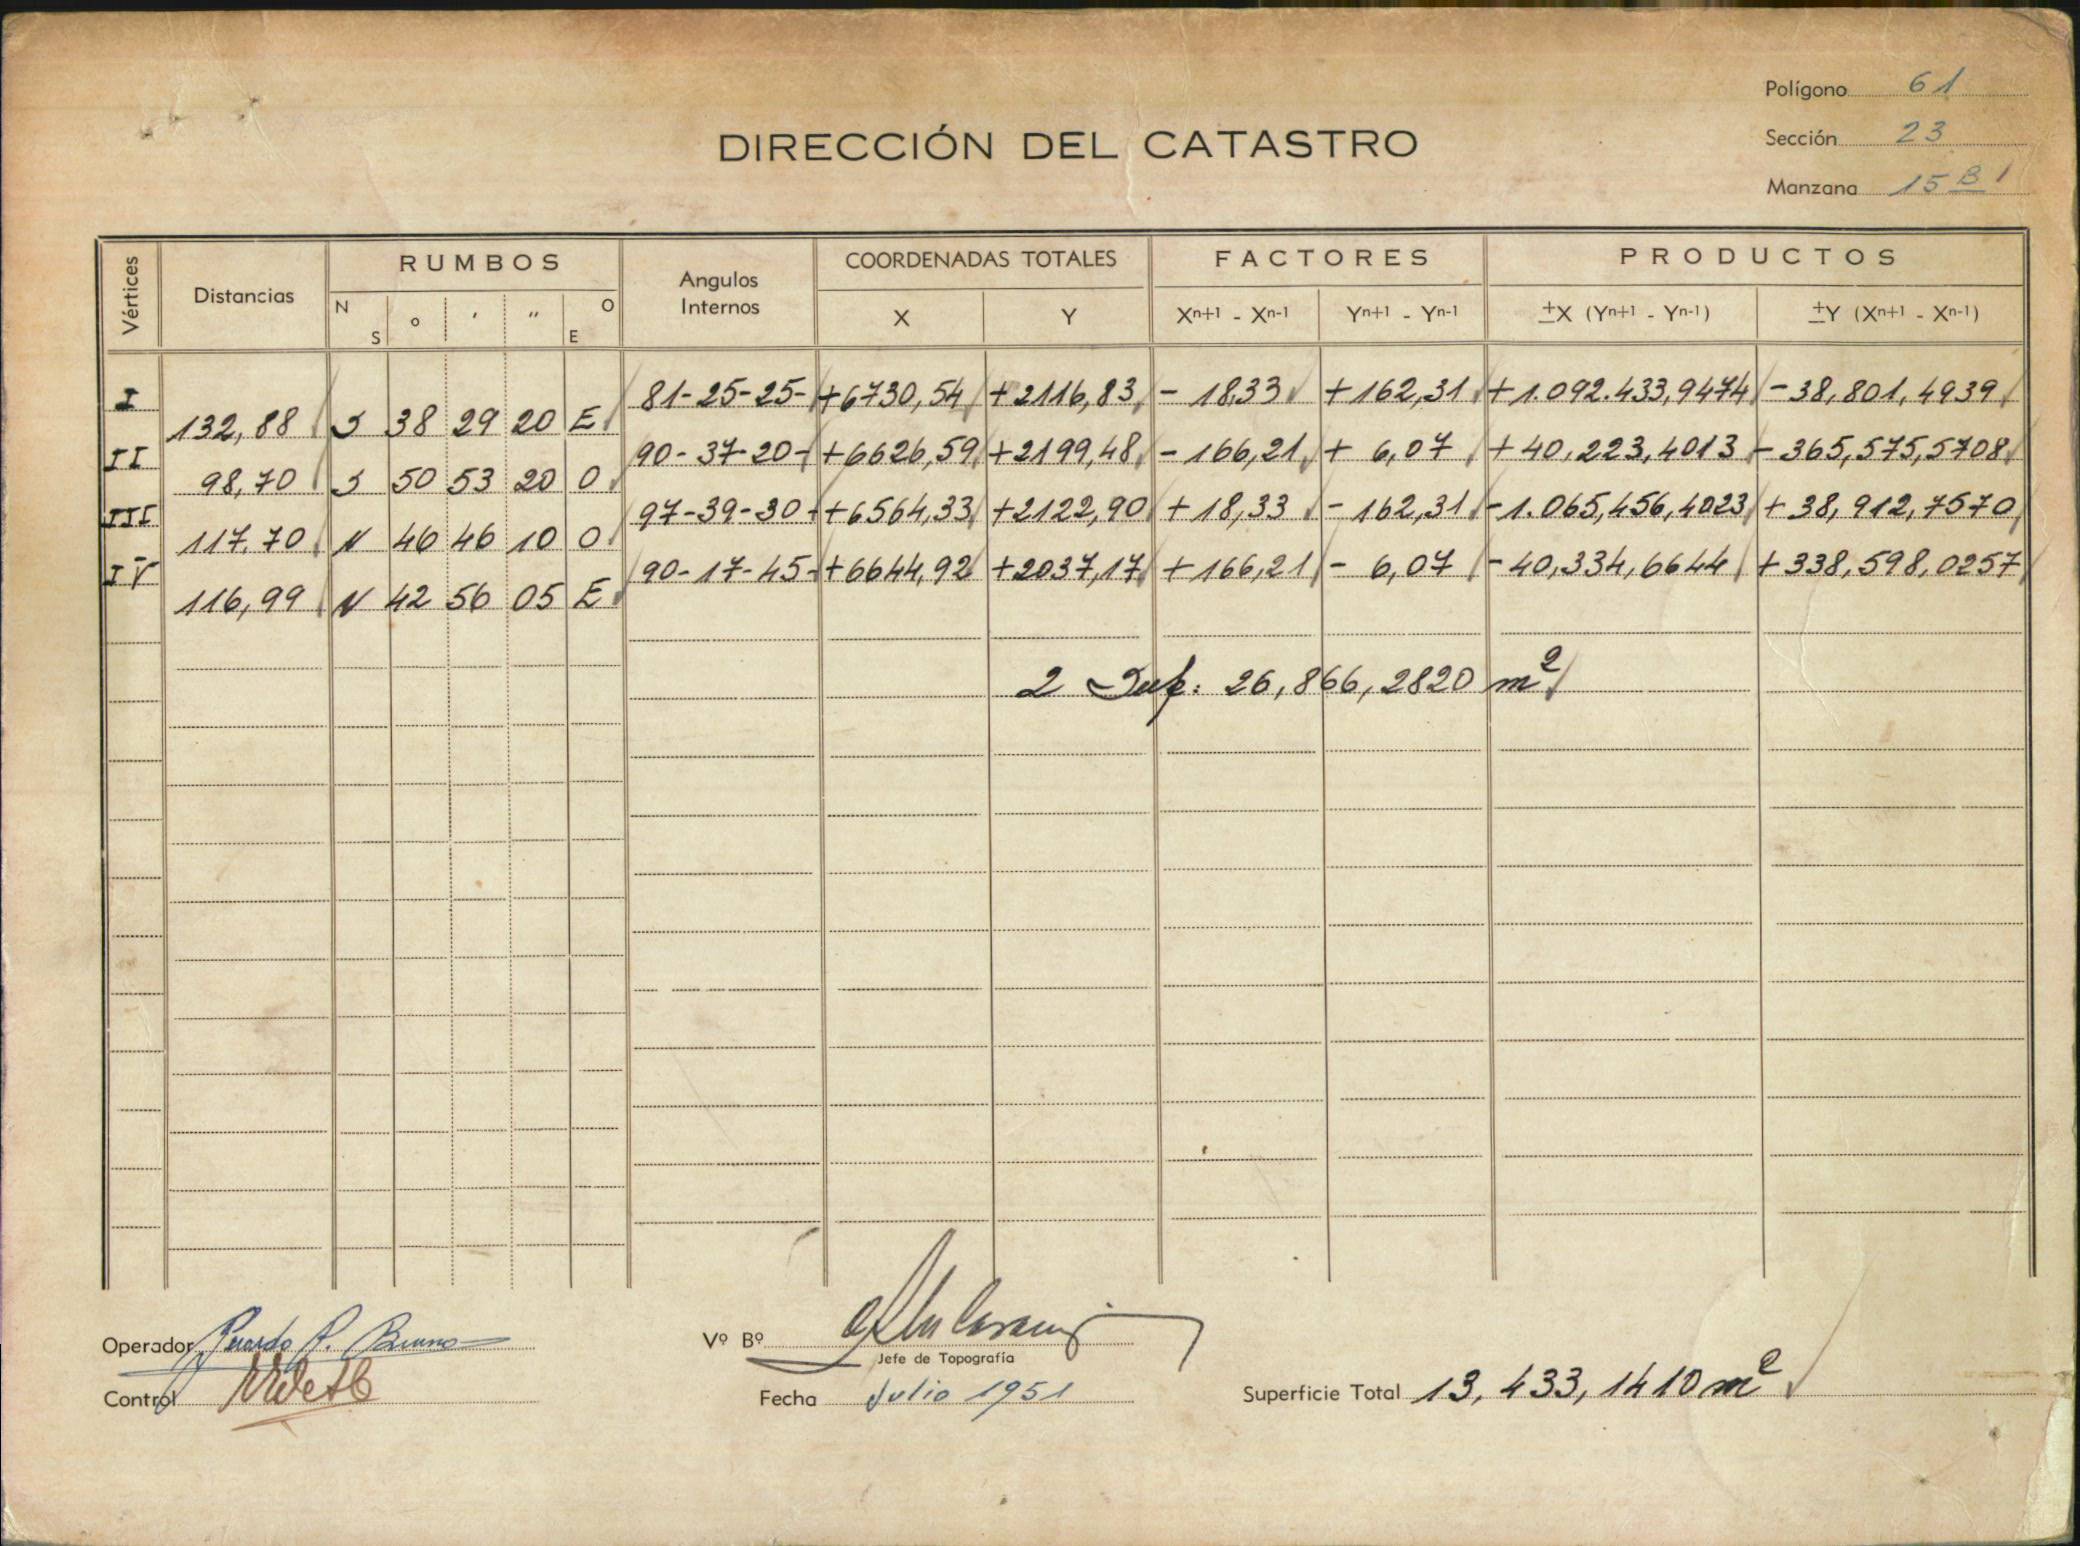 Polígono 61
DIRECCIÓN DEL CATASTRO
Sección 23
Manzana 15 B 1
Vértices Distancias RUMBOS Angulos Internos COORDENADAS TOTALES FACTORES PRODUCTOS
N S ° ' " O E X Y Xn+1 - Xn-1 Yn+1 - Yn-1 ±X (Yn+1 - Yn-1) ±Y (Xn+1 - Xn-1)
I 81-25-25- +6730,54 +2116,83 - 18,33 +162,31 +1.092.433,9474 -38,801,4939
132,88 S 38 29 20 E
II 90-37-20- +6626,59 +2199,48 - 166,21 + 6,07 +40,223,4013 -365,575,5708
98,70 S 50 53 20 O
III 97-39-30- +6564,33 +2122,90 + 18,33 - 162,31 -1.065,456,4023 +38,912,7570
117,70 N 46 46 10 O
IV 90-17-45- +6644,92 +2037,17 +166,21 - 6,07 -40,334,6644 +338,598,0257
116,99 N 42 56 05 E
2 Sup: 26,866,2820 m²
Operador Ricardo A. Bruno
Vº Bº
Jefe de Topografía
Control
Fecha Julio 1951
Superficie Total 13,433,1410 m²